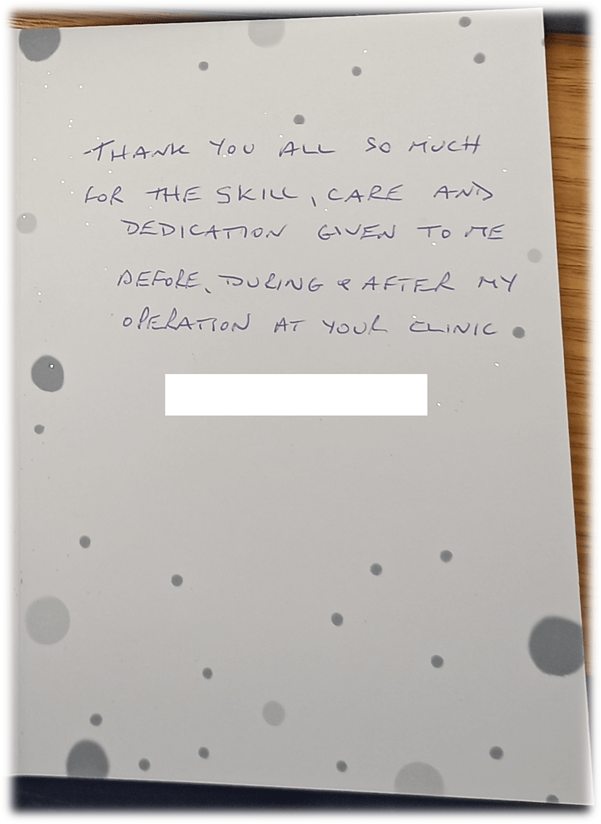 THANK YOU ALL SO MUCH
FOR THE SKILL, CARE AND
DEDICATION GIVEN TO ME
BEFORE, DURING & AFTER MY
OPERATION AT YOUR CLINIC